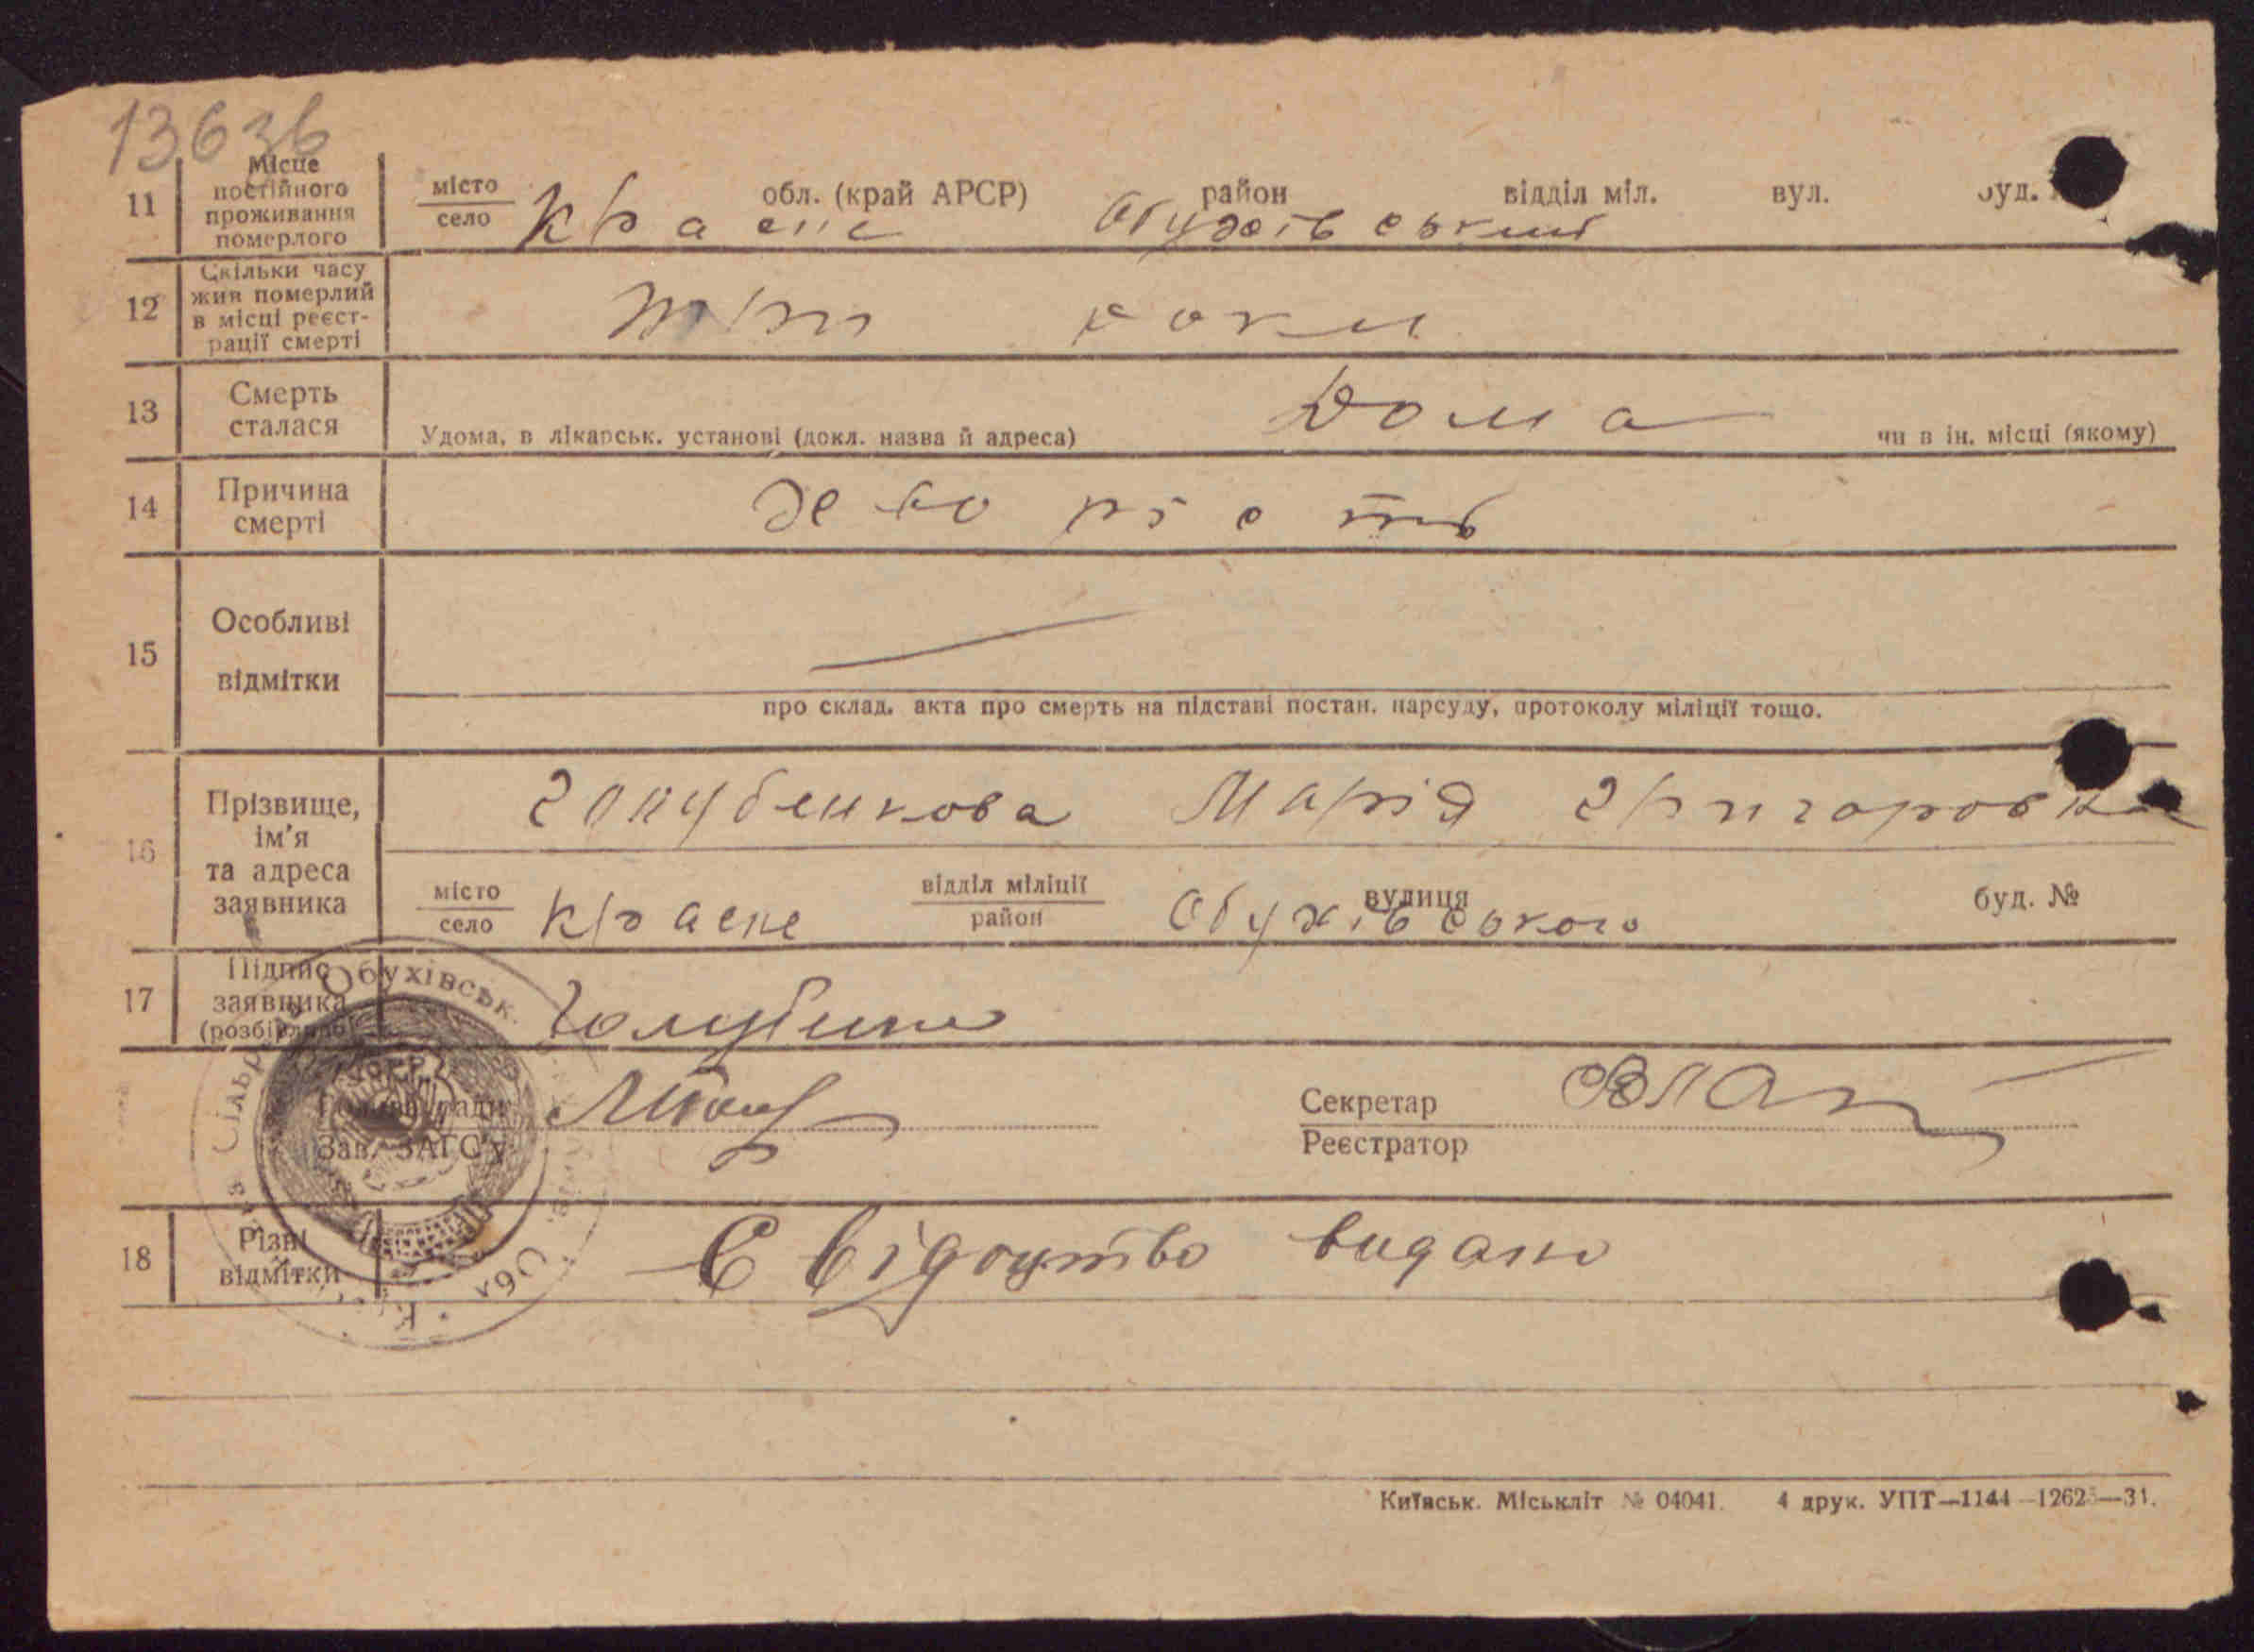 13636
11 Місце постійного проживання померлого місто село Красне обл. (край АРСР) район Обухівський відділ міл. вул. буд.
12 Скільки часу жив померлий в місці реєстрації смерті три роки
13 Смерть сталася Удома, в лікарськ. установі (докл. назва й адреса) Дома чи в ін. місці (якому)
14 Причина смерті
15 Особливі відмітки
про склад. акта про смерть на підставі постан. нарсуду, протоколу міліції тощо.
16 Прізвище, ім'я та адреса заявника Голубенкова Марія Григоровна
місто село Красне відділ міліції район Обухівського вулиця буд. №
17 Підпис заявника (розбірливо)
Голова ради Зав. ЗАГС'у Секретар Реєстратор
Обухівськ.
18 Різні відмітки Свідоцтво видано
Київськ. Міськліт № 04041. 4 друк. УПТ—1144